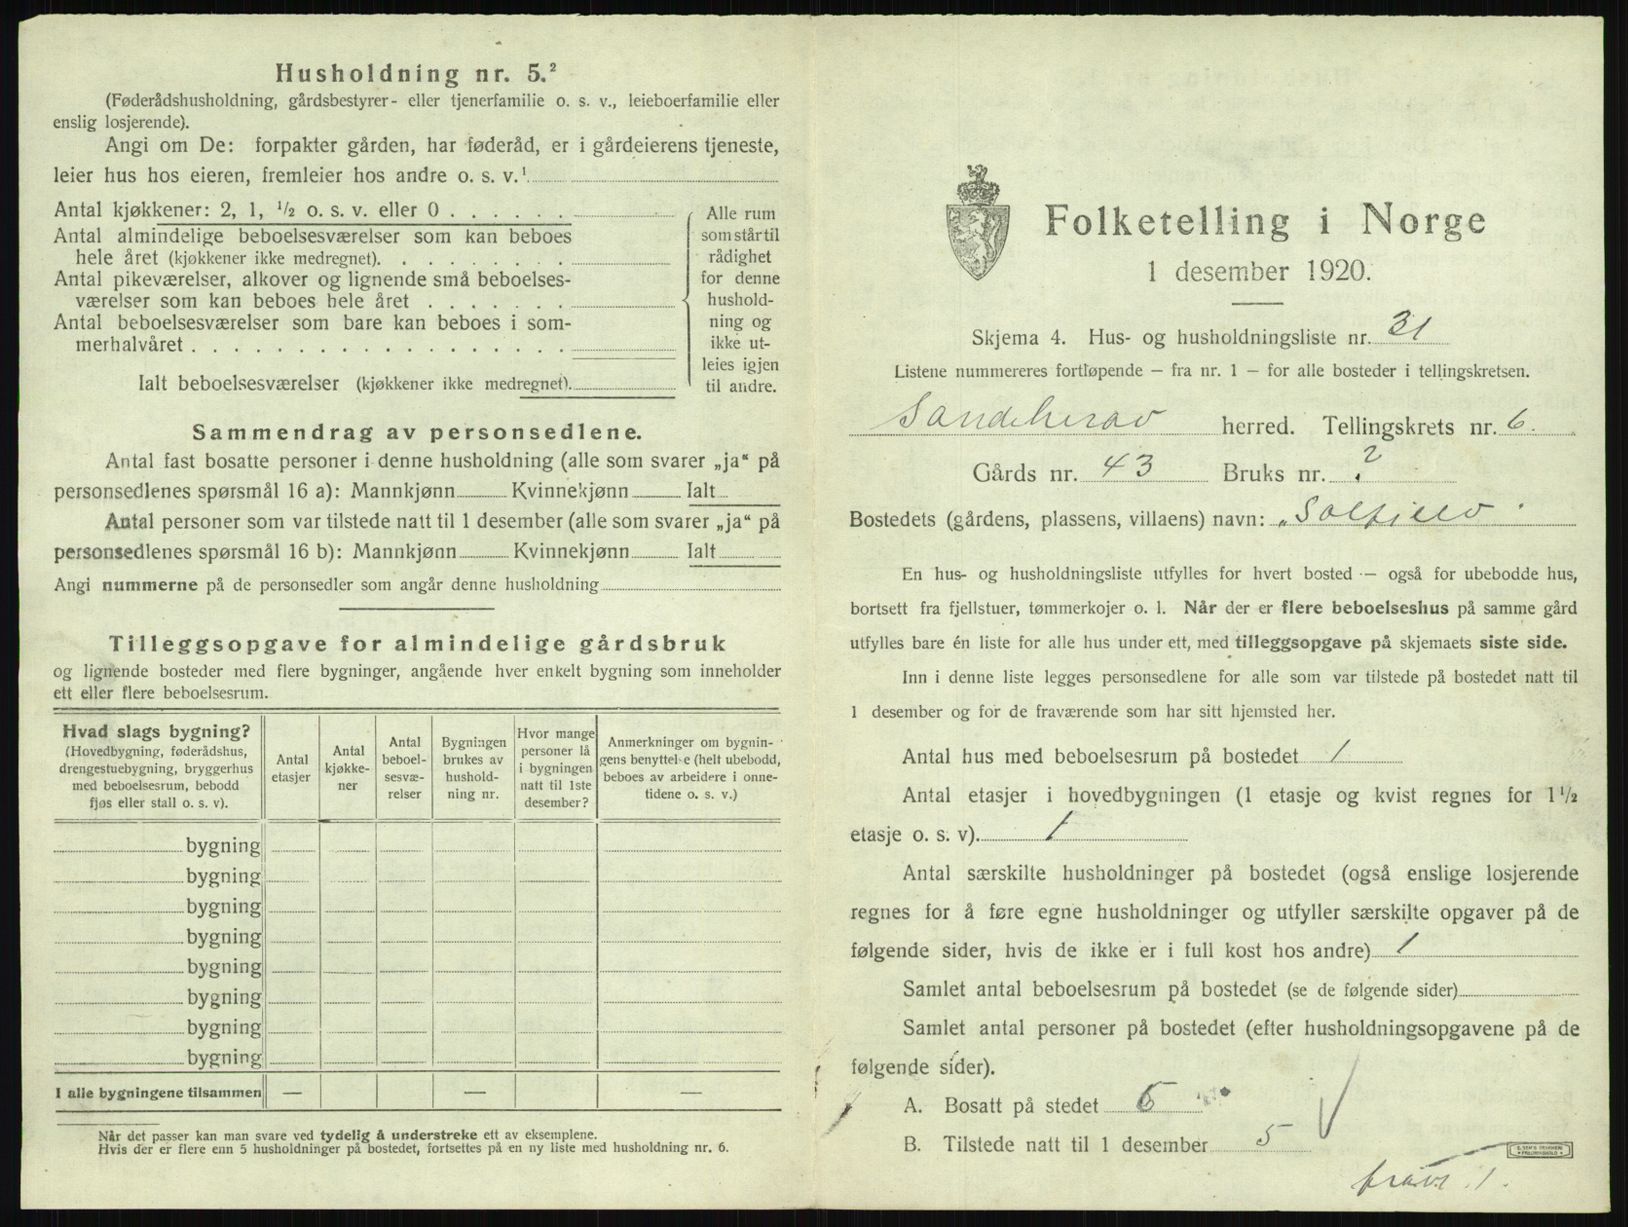 Husholdning nr. 5.²
(Føderådshusholdning, gårdsbestyrer- eller tjenerfamilie o. s. v., leieboerfamilie eller
enslig losjerende).
Angi om De: forpakter gården, har føderåd, er i gårdeierens tjeneste,
leier hus hos eieren, fremleier hos andre o. s. v.¹
Antal kjøkkener: 2, 1, ½ o. s. v. eller 0 . . . . . .
Antal almindelige beboelsesværelser som kan beboes
hele året (kjøkkener ikke medregnet). . . . . . . . .
Antal pikeværelser, alkover og lignende små beboelses-
værelser som kan beboes hele året . . . . . . .
Antal beboelsesværelser som bare kan beboes i som-
merhalvåret . . . . . . . . . . . . . . . . . .
Ialt beboelsesværelser (kjøkkener ikke medregnet).
Alle rum
som står til
rådighet
for denne
hushold-
ning og
ikke ut-
leies igjen
til andre.
Sammendrag av personsedlene.
Antal fast bosatte personer i denne husholdning (alle som svarer „ja“ på
personsedlenes spørsmål 16 a): Mannkjønn Kvinnekjønn Ialt
Antal personer som var tilstede natt til 1 desember (alle som svarer „ja“ på
personsedlenes spørsmål 16 b): Mannkjønn Kvinnekjønn Ialt
Angi nummerne på de personsedler som angår denne husholdning
Tilleggsopgave for almindelige gårdsbruk
og lignende bosteder med flere bygninger, angående hver enkelt bygning som inneholder
ett eller flere beboelsesrum.
Hvad slags bygning?
(Hovedbygning, føderådshus,
drengestuebygning, bryggerhus
med beboelsesrum, bebodd
fjøs eller stall o. s. v).
Antal
etasjer
Antal
kjøkke-
ner
Antal
beboel-
sesvæ-
relser
Bygningen
brukes av
hushold-
ning nr.
Hvor mange
personer lå
i bygningen
natt til 1ste
desember?
Anmerkninger om bygnin-
gens benyttelse (helt ubebodd,
beboes av arbeidere i onne-
tidene o. s. v.)
bygning
bygning
bygning
bygning
bygning
bygning
bygning
bygning
I alle bygningene tilsammen — — —
Når det passer kan man svare ved tydelig å understreke ett av eksemplene.
Hvis der er flere enn 5 husholdninger på bostedet, fortsettes på en ny liste med husholdning nr. 6.
Folketelling i Norge
1 desember 1920.
Skjema 4. Hus- og husholdningsliste nr. 31
Listene nummereres fortløpende — fra nr. 1 — for alle bosteder i tellingskretsen.
Sandeherav herred. Tellingskrets nr. 6.
Gårds nr. 43 Bruks nr. ?
Bostedets (gårdens, plassens, villaens) navn:
En hus- og husholdningsliste utfylles for hvert bosted — også for ubebodde hus,
bortsett fra fjellstuer, tømmerkojer o. l. Når der er flere beboelseshus på samme gård
utfylles bare én liste for alle hus under ett, med tilleggsopgave på skjemaets siste side.
Inn i denne liste legges personsedlene for alle som var tilstede på bostedet natt til
1 desember og for de fraværende som har sitt hjemsted her.
Antal hus med beboelsesrum på bostedet 1
Antal etasjer i hovedbygningen (1 etasje og kvist regnes for 1½
etasje o. s. v). 1
Antal særskilte husholdninger på bostedet (også enslige losjerende
regnes for å føre egne husholdninger og utfyller særskilte opgaver på de
følgende sider, hvis de ikke er i full kost hos andre) 1
Samlet antal beboelsesrum på bostedet (se de følgende sider)
Samlet antal personer på bostedet (efter husholdningsopgavene på de
følgende sider).
A. Bosatt på stedet 6
B. Tilstede natt til 1 desember 5
frav. 1.